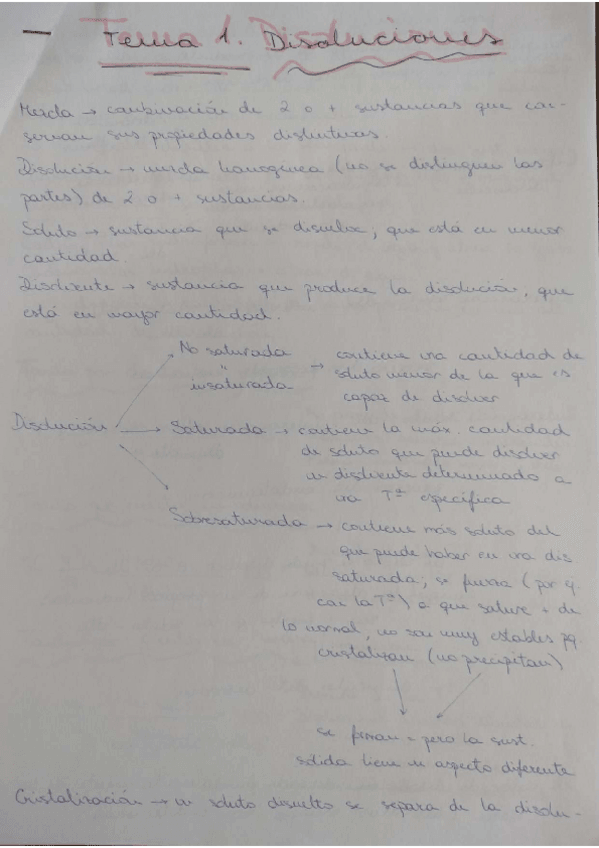 Tema 1. Disoluciones
Mezcla → combinación de 2 o + sustancias que con-
servan sus propiedades distintivas.
Disolución → mezcla homogénea (no se distinguen las
partes) de 2 o + sustancias.
Soluto → sustancia que se disuelve, que está en menor
cantidad.
Disolvente → sustancia que produce la disolución, que
está en mayor cantidad.
Disolución
No saturada
"
insaturada
→ contiene una cantidad de
soluto menor de la que es
capaz de disolver
Saturada → contiene la máx. cantidad
de soluto que puede disolver
un disolvente determinado a
una Tª específica
Sobresaturada → contiene más soluto del
que puede haber en una dis
saturada, se fuerza (por ej.
con la Tª) a que sature + de
lo normal, no son muy estables pq.
cristalizan (no precipitan)
se forman = pero la sust.
sólida tiene un aspecto diferente
Cristalización → un soluto disuelto se separa de la disolu-